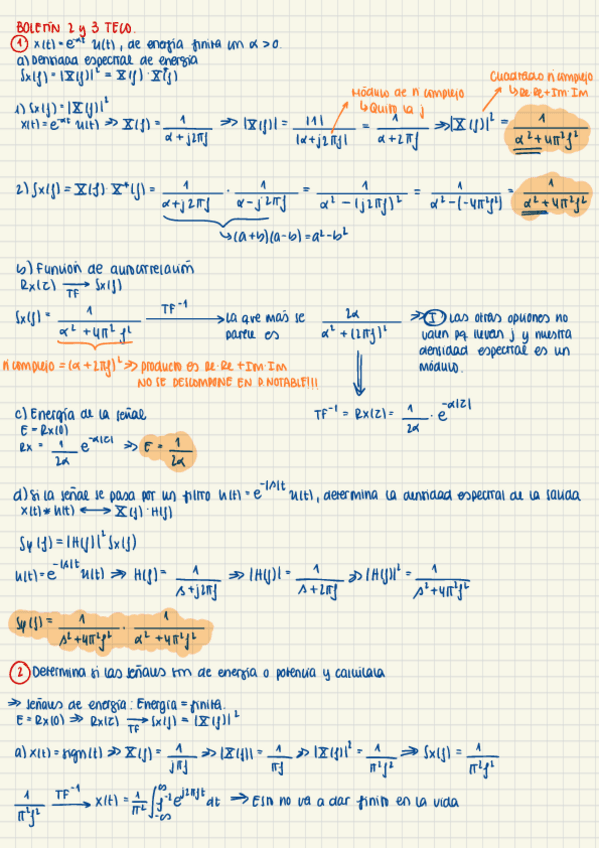 BOLETÍN 2 y 3 TECO.
① x(t)=e^-αt u(t), de energía finita con α>0.
a) Densidad espectral de energía
Sx(f) = |X(f)|² = X(f)·X*(f)
Módulo de nº complejo
↳ Quito la j
Cuadrado nº complejo
↳ Re·Re + Im·Im
1) Sx(f) = |X(f)|²
x(t) = e^-αt u(t) ⇒ X(f) = 1/(α+j2πf) ⇒ |X(f)| = |1|/|α+j2πf| = 1/(α+2πf) ⇒ |X(f)|² = 1/(α²+4π²f²)
2) Sx(f) = X(f)·X*(f) = 1/(α+j2πf) · 1/(α-j2πf) = 1/(α²-(j2πf)²) = 1/(α²-(-4π²f²)) = 1/(α²+4π²f²)
↳ (a+b)(a-b) = a²-b²
b) Función de autocorrelación
Rx(z) →TF Sx(f)
Sx(f) = 1/(α²+4π²f²) →TF⁻¹ → La que más se parece es 2α/(α²+(2πf)²) ⇒ Ⓘ Las otras opciones no valen pq llevan j y nuestra densidad espectral es un módulo.
nº complejo = (α+2πf)² ⇒ producto es Re·Re + Im·Im
NO SE DESCOMPONE EN P. NOTABLE!!!
TF⁻¹ = Rx(z) = 1/2α · e^-α|z|
c) Energía de la señal
E = Rx(0)
Rx = 1/2α e^-α|z| ⇒ E = 1/2α
d) Si la señal se pasa por un filtro h(t) = e^-|s|t u(t), determina la densidad espectral de la salida
x(t) * h(t) ⟷ X(f)·H(f)
Sy(f) = |H(f)|² Sx(f)
h(t) = e^-|s|t u(t) ⇒ H(f) = 1/(s+j2πf) ⇒ |H(f)| = 1/(s+2πf) ⇒ |H(f)|² = 1/(s²+4π²f²)
Sy(f) = 1/(s²+4π²f²) · 1/(α²+4π²f²)
② Determina si las señales son de energía o potencia y calcúlala
⇒ Señales de energía: Energía = finita.
E = Rx(0) ⇒ Rx(z) →TF Sx(f) = |X(f)|²
a) x(t) = sign(t) ⇒ X(f) = 1/jπf ⇒ |X(f)| = 1/πf ⇒ |X(f)|² = 1/π²f² ⇒ Sx(f) = 1/π²f²
1/π²f² →TF⁻¹ x(t) = 1/π² ∫_-∞^∞ f⁻² e^j2πft dt ⇒ Esto no va a dar finito en la vida